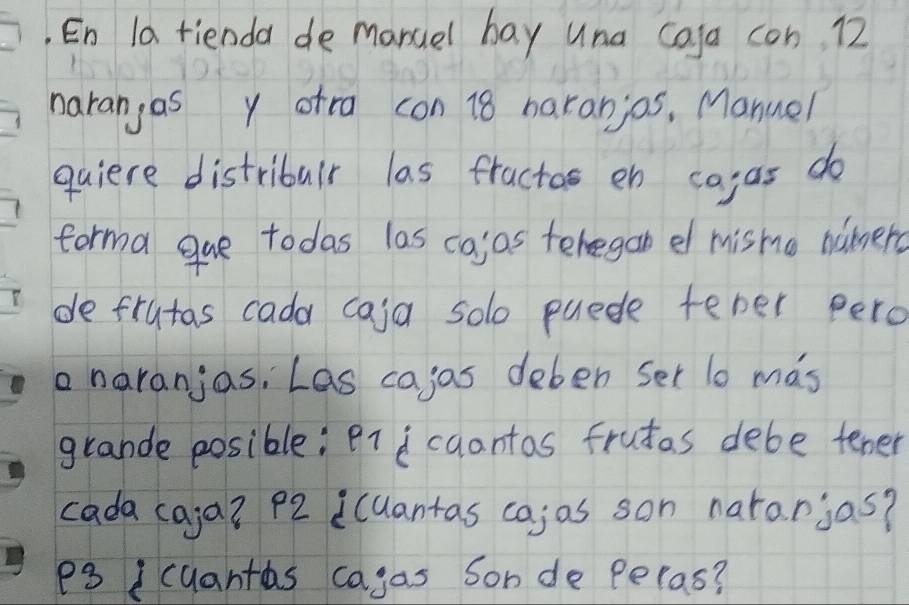 .En la tienda de Manuel hay una caja con 12
naranjas y otra con 18 naranjas. Manuel
quiere distribuir las fructas en cajas de
forma que todas las cajas tehegan el mismo número
de frutas cada caja solo puede tener pero
o naranjas. Las cajas deben ser lo más
grande posible: P1 ¿cuantos frutas debe tener
cada caja? P2 ¿cuantas cajas son naranjas?
P3 ¿cuantas cajas son de peras?